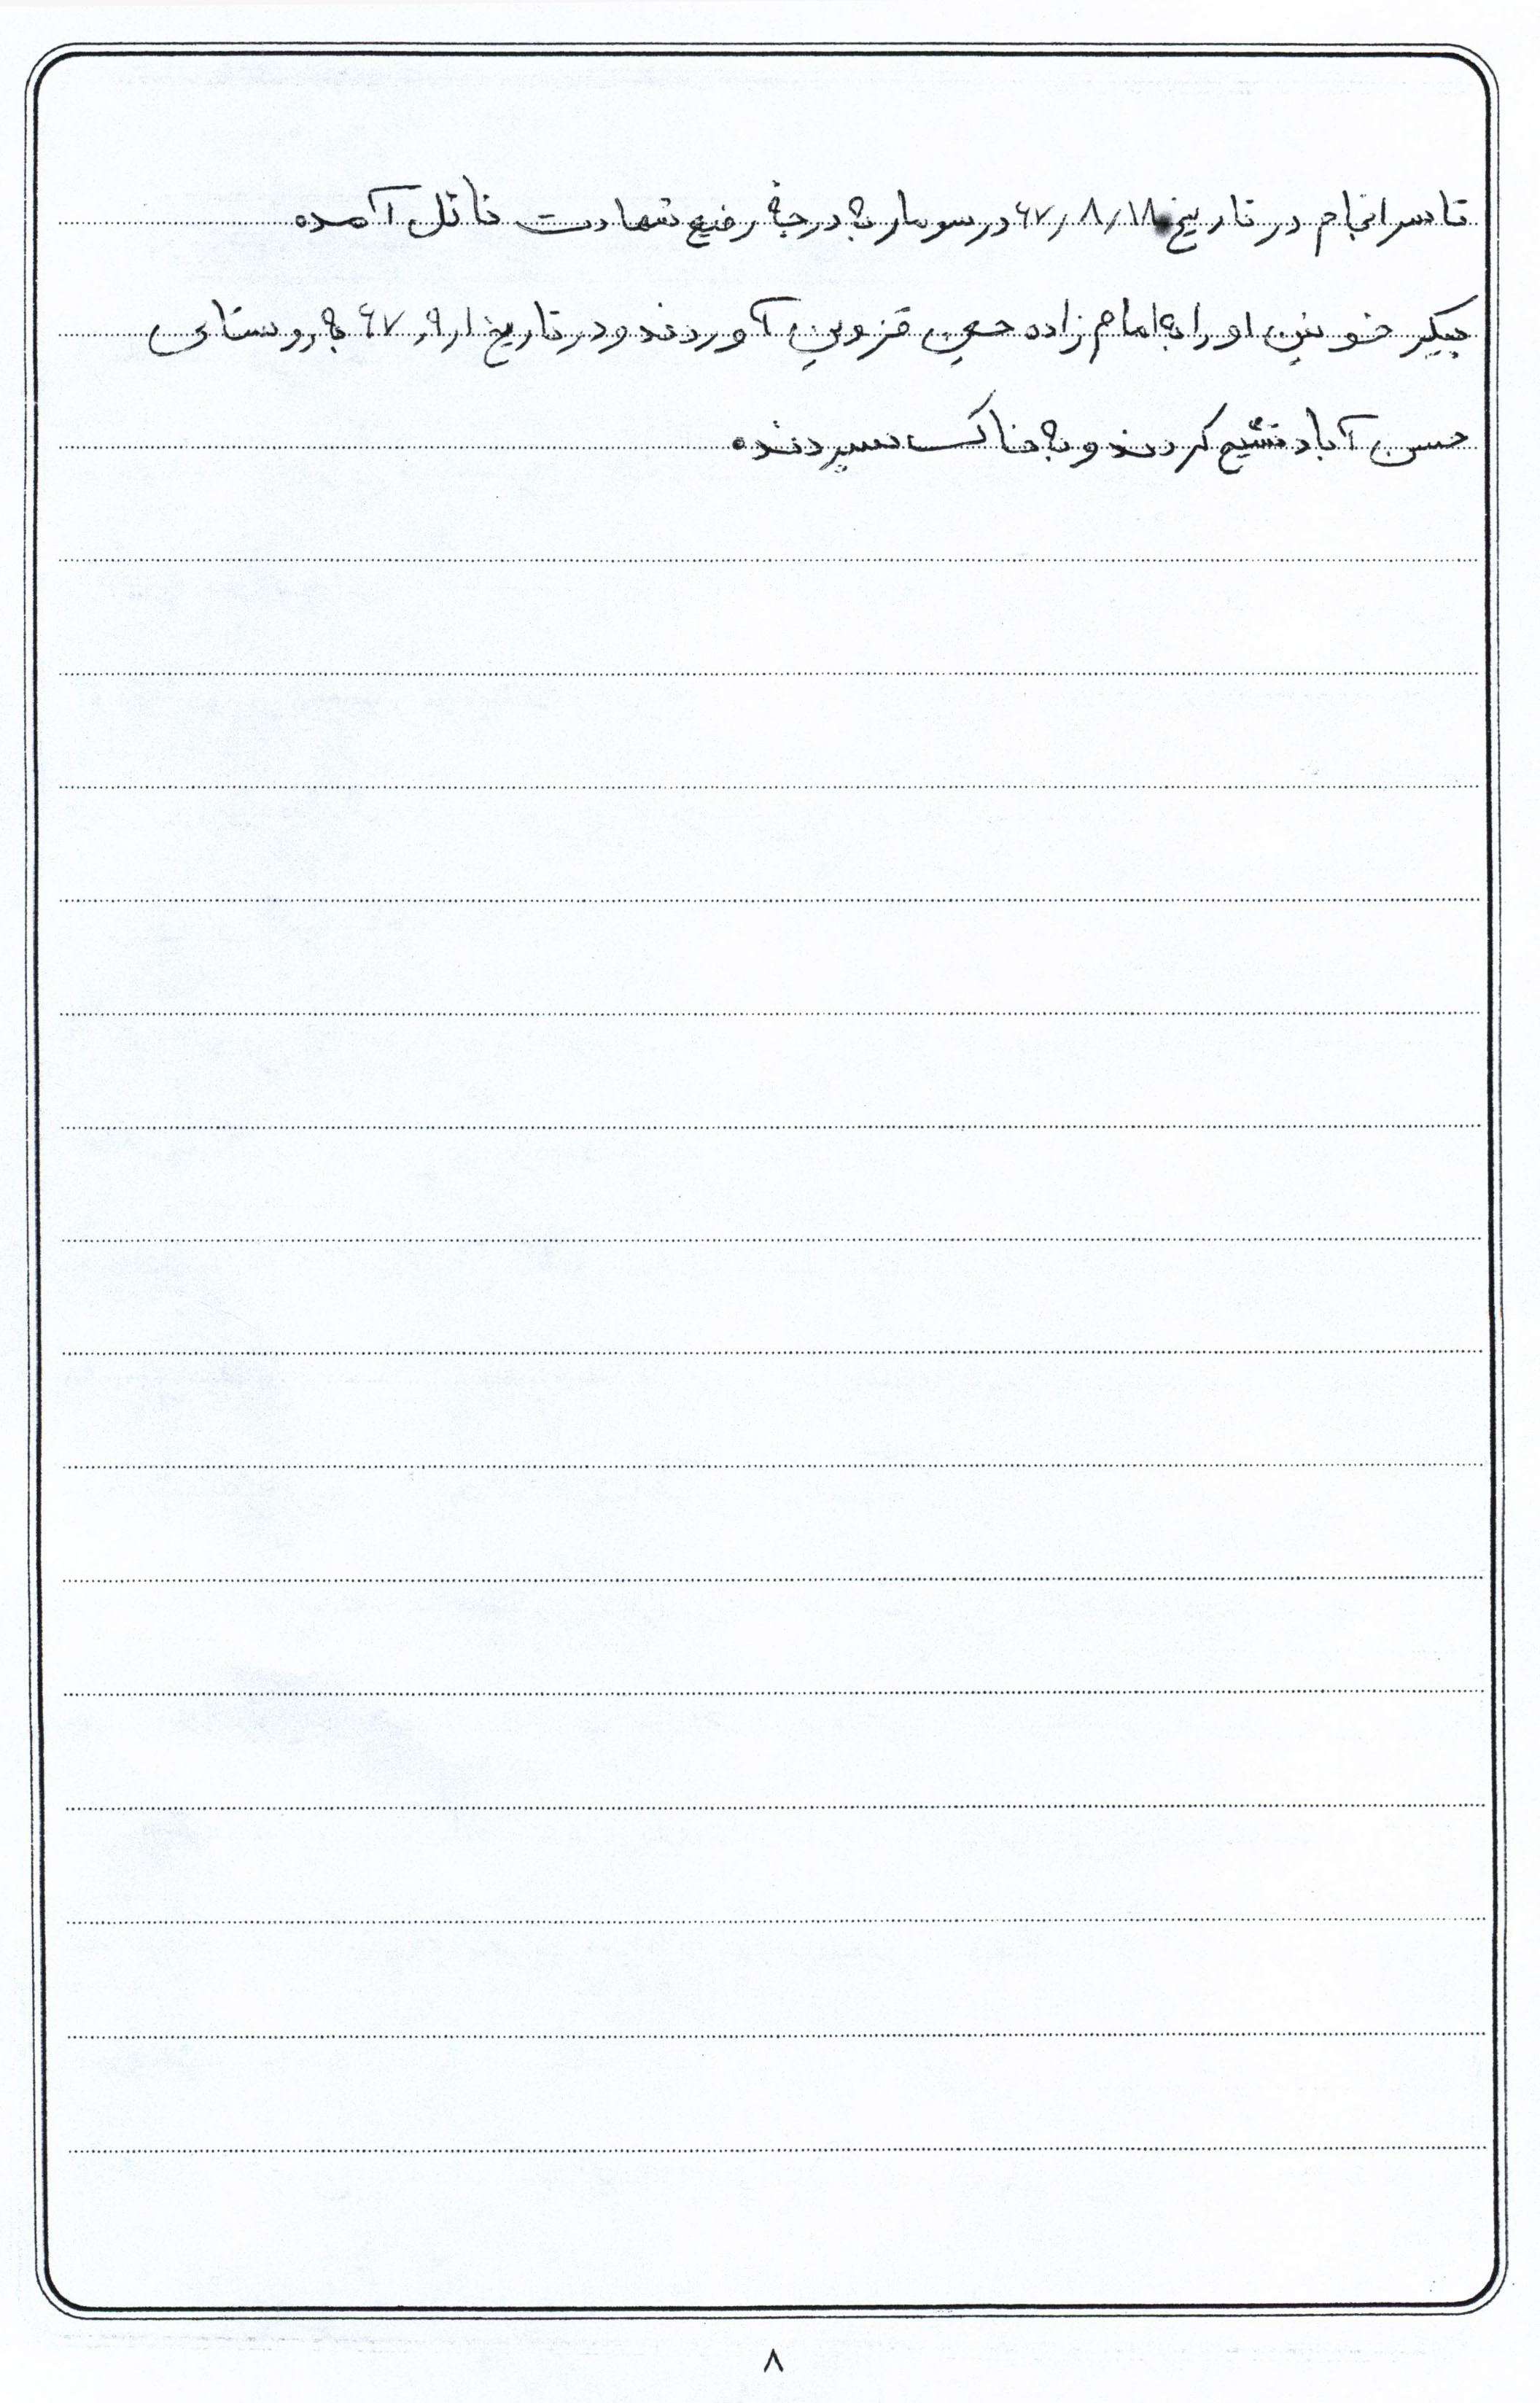 تا سرانجام در تاریخ ۶۷/۸/۱۸ در سومار به درجهٔ رفیع شهادت نائل آمده
پیکر خونین او را به امام زاده حسین قزوین آوردند و در تاریخ ۶۷٫۹٫۱ به روستای
حسن آباد تشیع کردند و به خاک سپردنده
۸